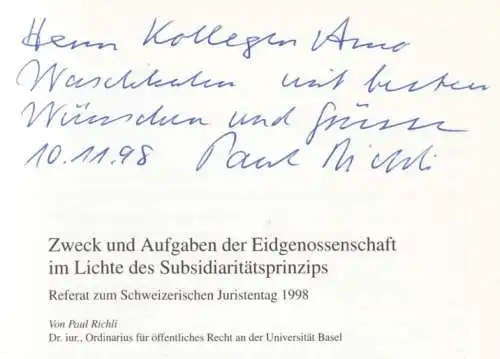 Herrn Kollegen Arno
Waschkuhn mit besten
Wünschen und Grüssen
10.11.98 Paul Richli
Zweck und Aufgaben der Eidgenossenschaft
im Lichte des Subsidiaritätsprinzips
Referat zum Schweizerischen Juristentag 1998
Von Paul Richli
Dr. iur., Ordinarius für öffentliches Recht an der Universität Basel